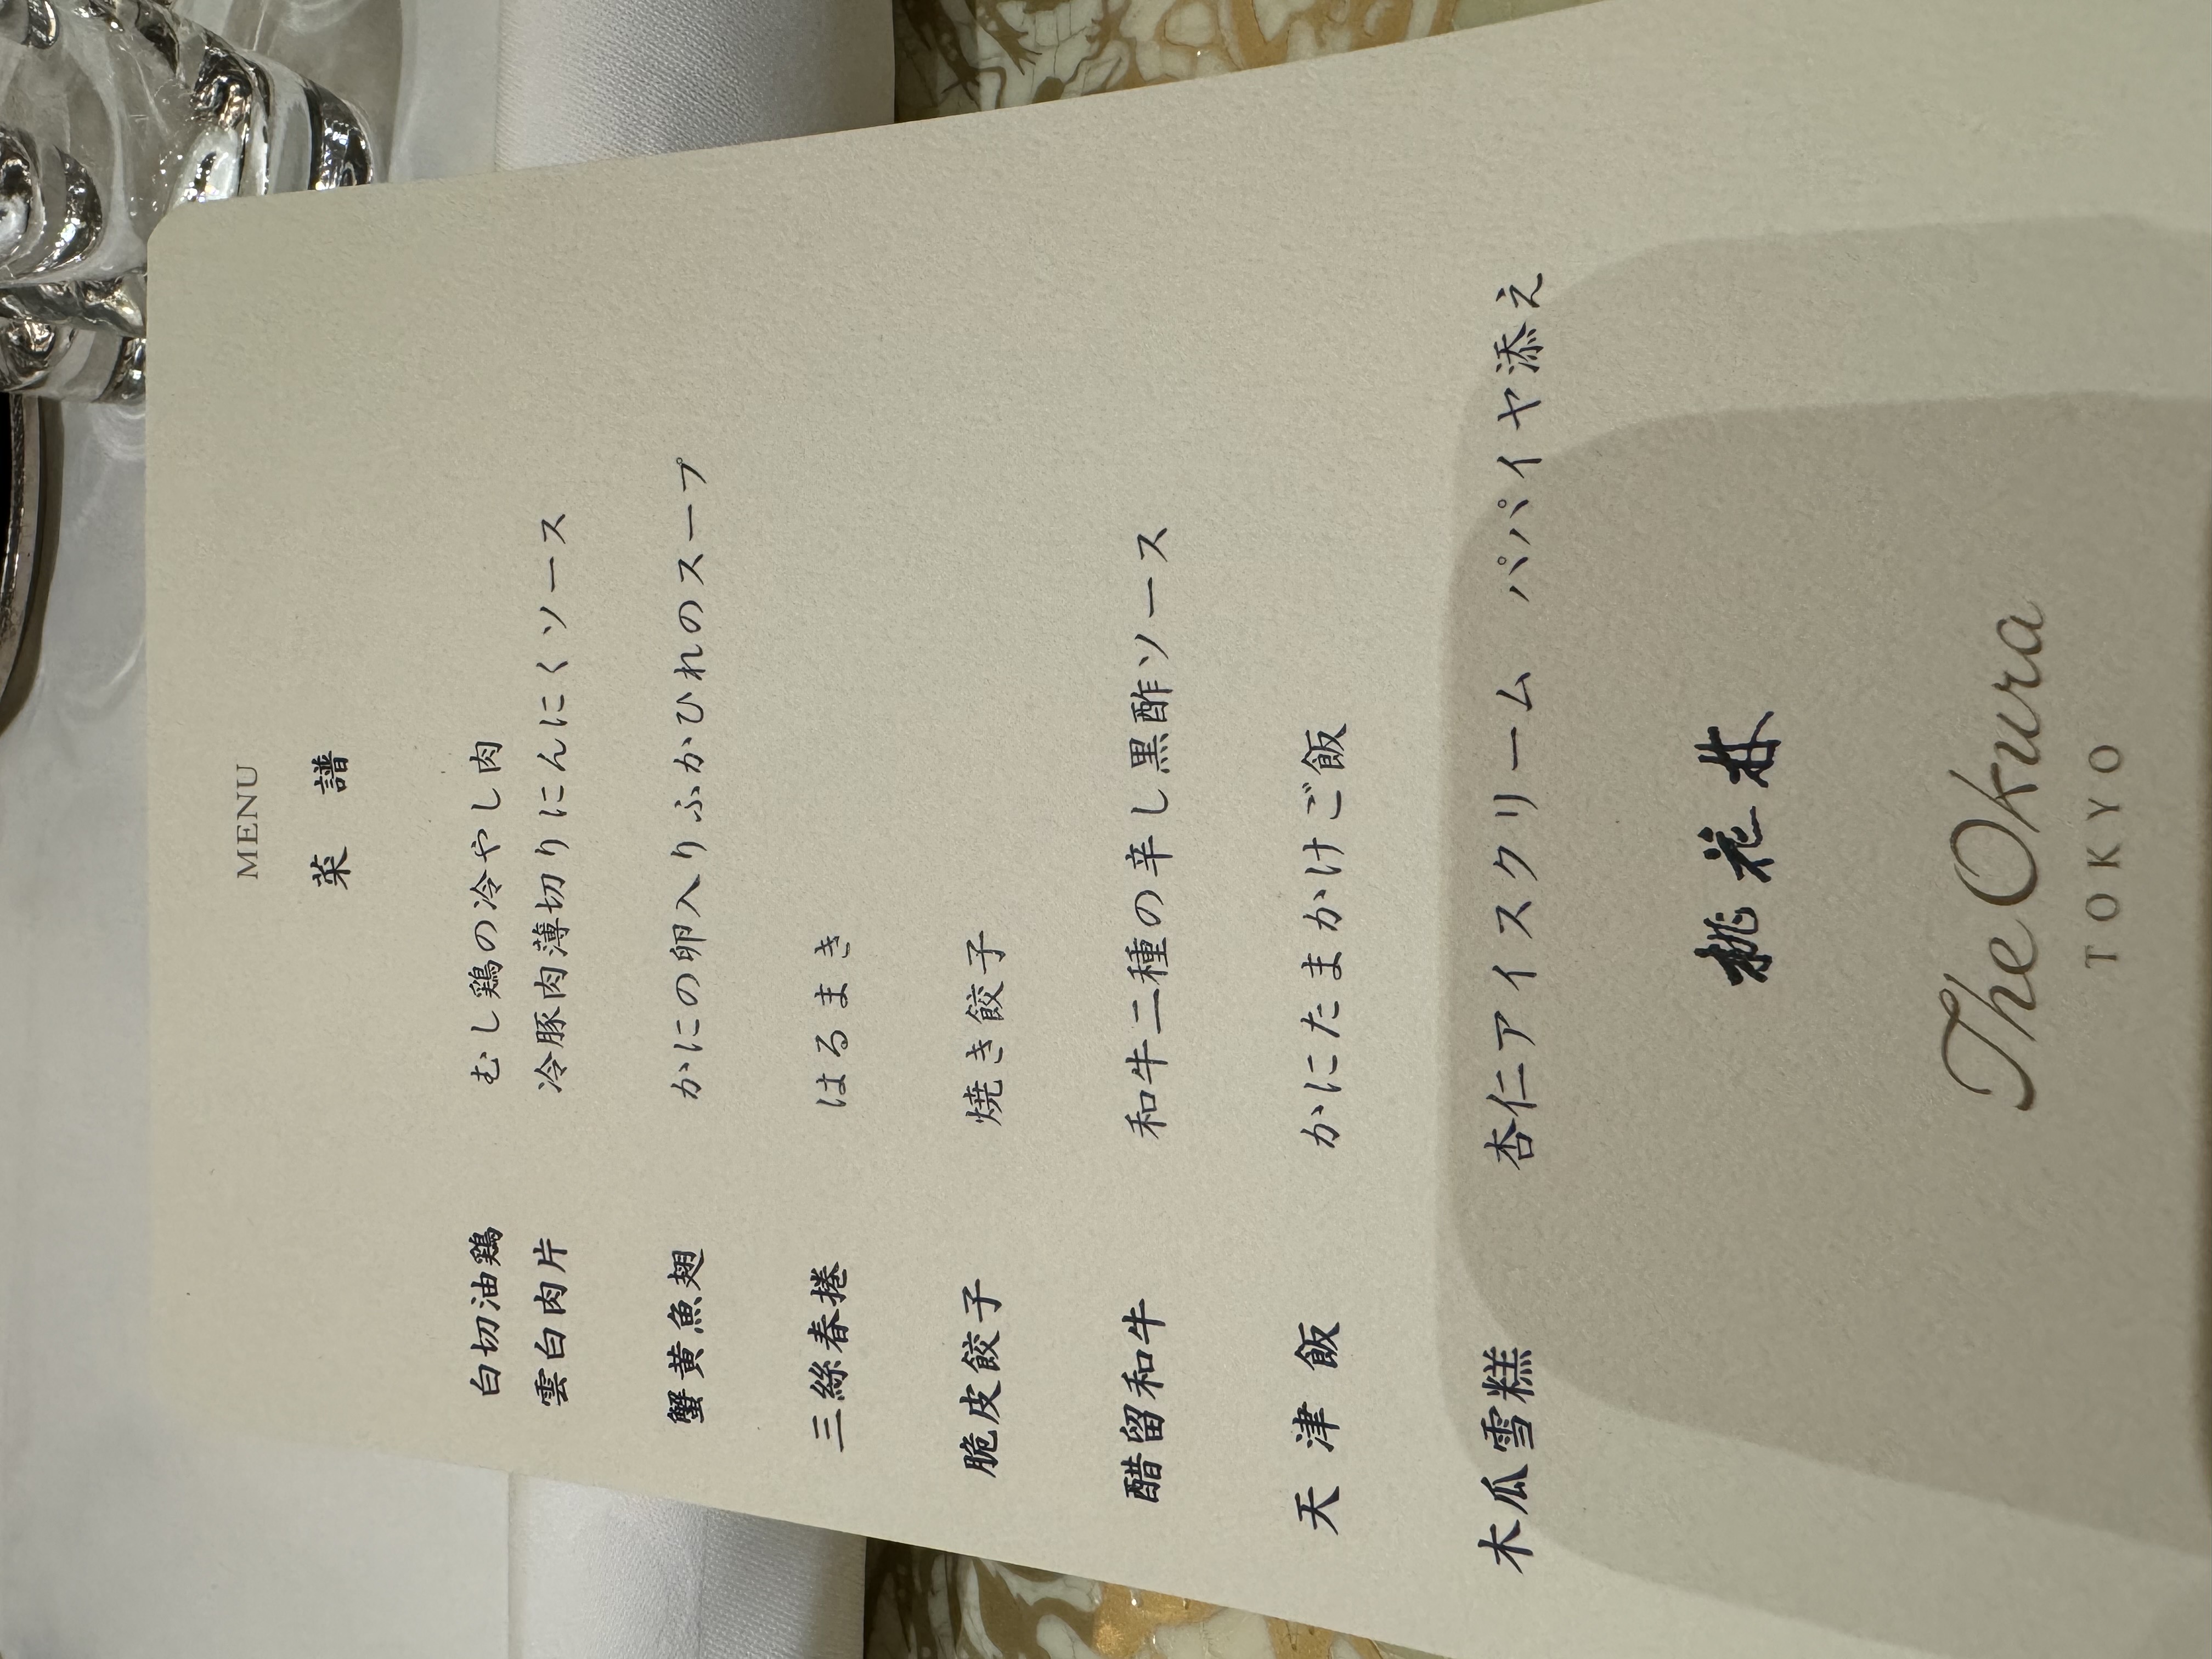 MENU
菜 譜
白切油鶏 むし鶏の冷やし肉
雲白肉片 冷豚肉薄切りにんにくソース
蟹黄魚翅 かにの卵入りふかひれのスープ
三絲春捲 はるまき
脆皮餃子 焼き餃子
醋留和牛 和牛二種の辛し黒酢ソース
天津飯 かにたまかけご飯
木瓜雪糕 杏仁アイスクリーム パパイヤ添え
桃花林
The Okura
TOKYO